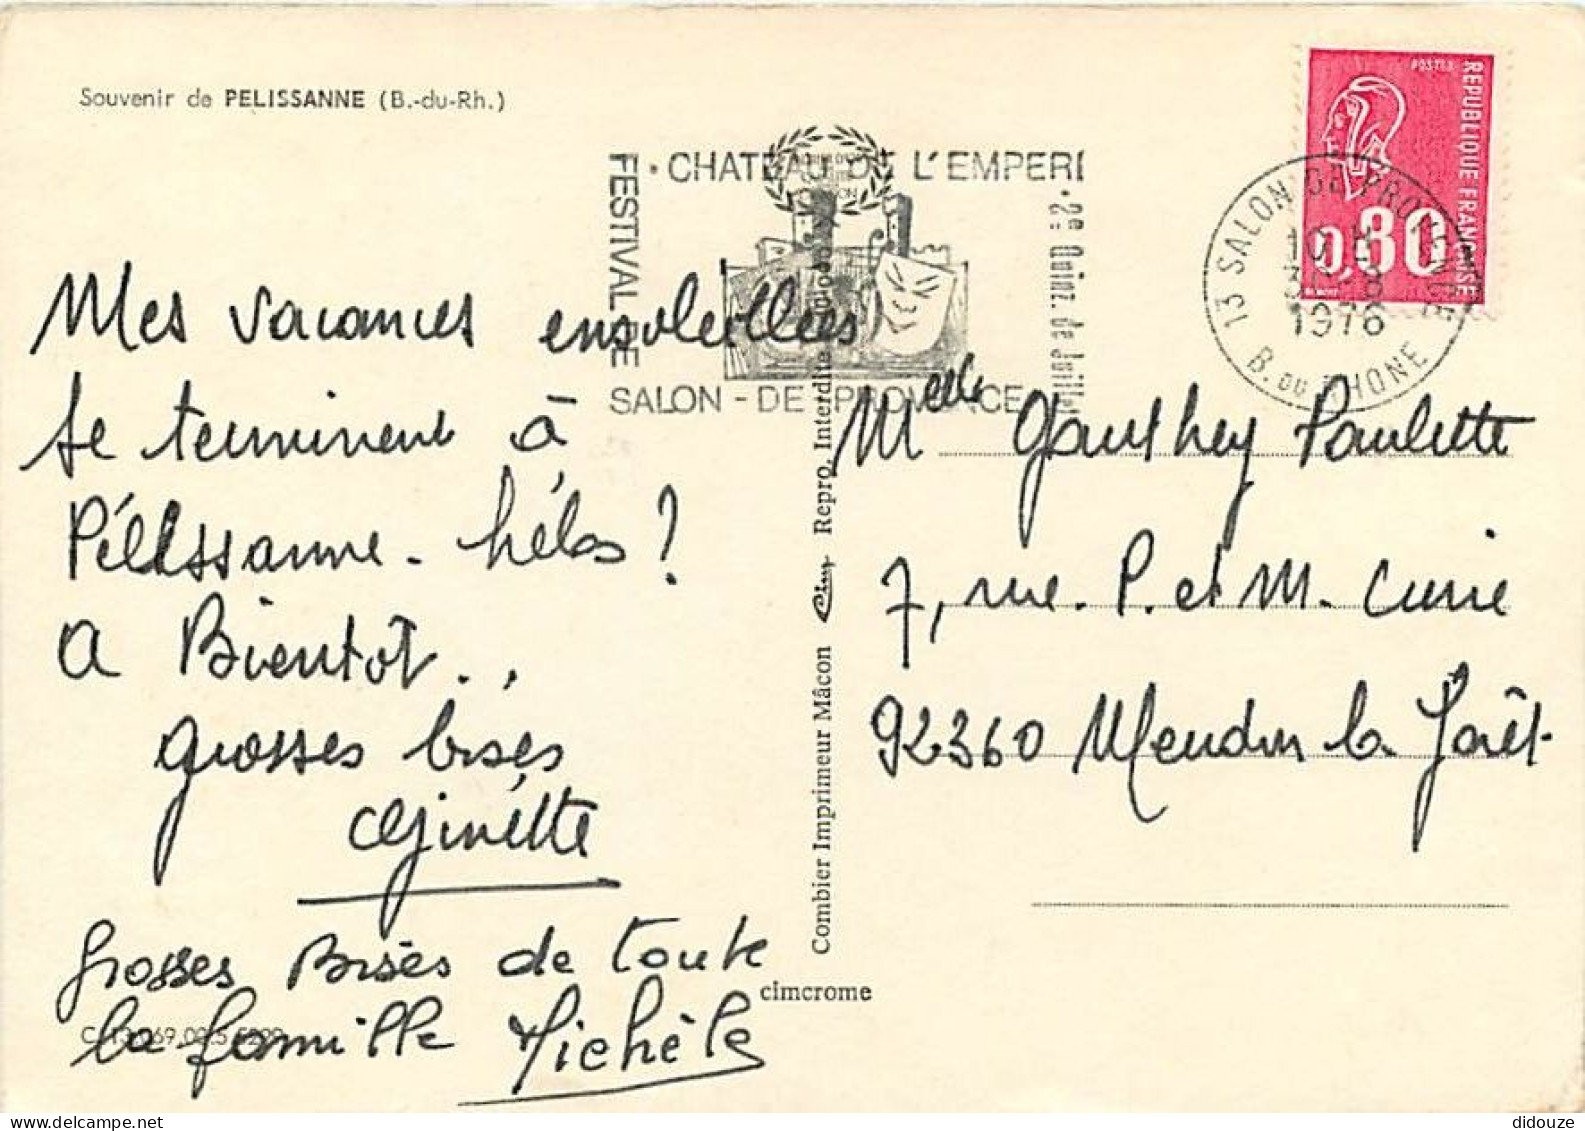 Souvenir de PELISSANNE (B.-du-Rh.)
• CHATEAU DE L'EMPERI
FESTIVAL DE
SALON - DE PROVENCE
• 2e Quinz. de Juillet
POSTES
REPUBLIQUE FRANCAISE
0,80
13 SALON DE PROVENCE
1976
B. DU RHONE
Mes vacances ensoleillées
se terminent à
Pélissanne - hélas ?
a Bientôt . .
grosses bises
Ginette
grosses Bises de toute
la famille Michèle
C. 13.069.00.5.5299
Combier Imprimeur Mâcon Cim Repro. Interdite
cimcrome
Melle Gauthey Paulette
7, rue P. et M. Curie
92360 Meudon la Forêt
didouze
delcampe.net